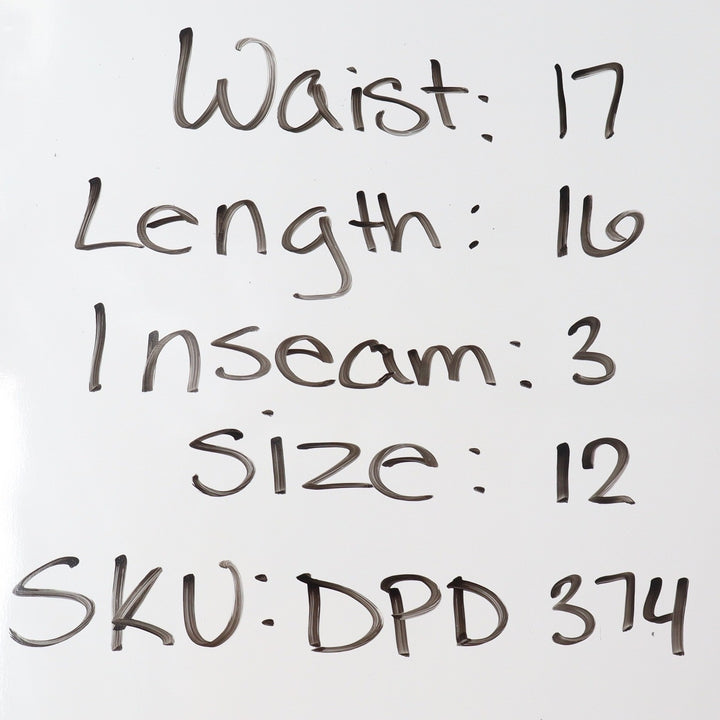 Waist: 17
Length: 16
Inseam: 3
Size: 12
SKU: DPD 374